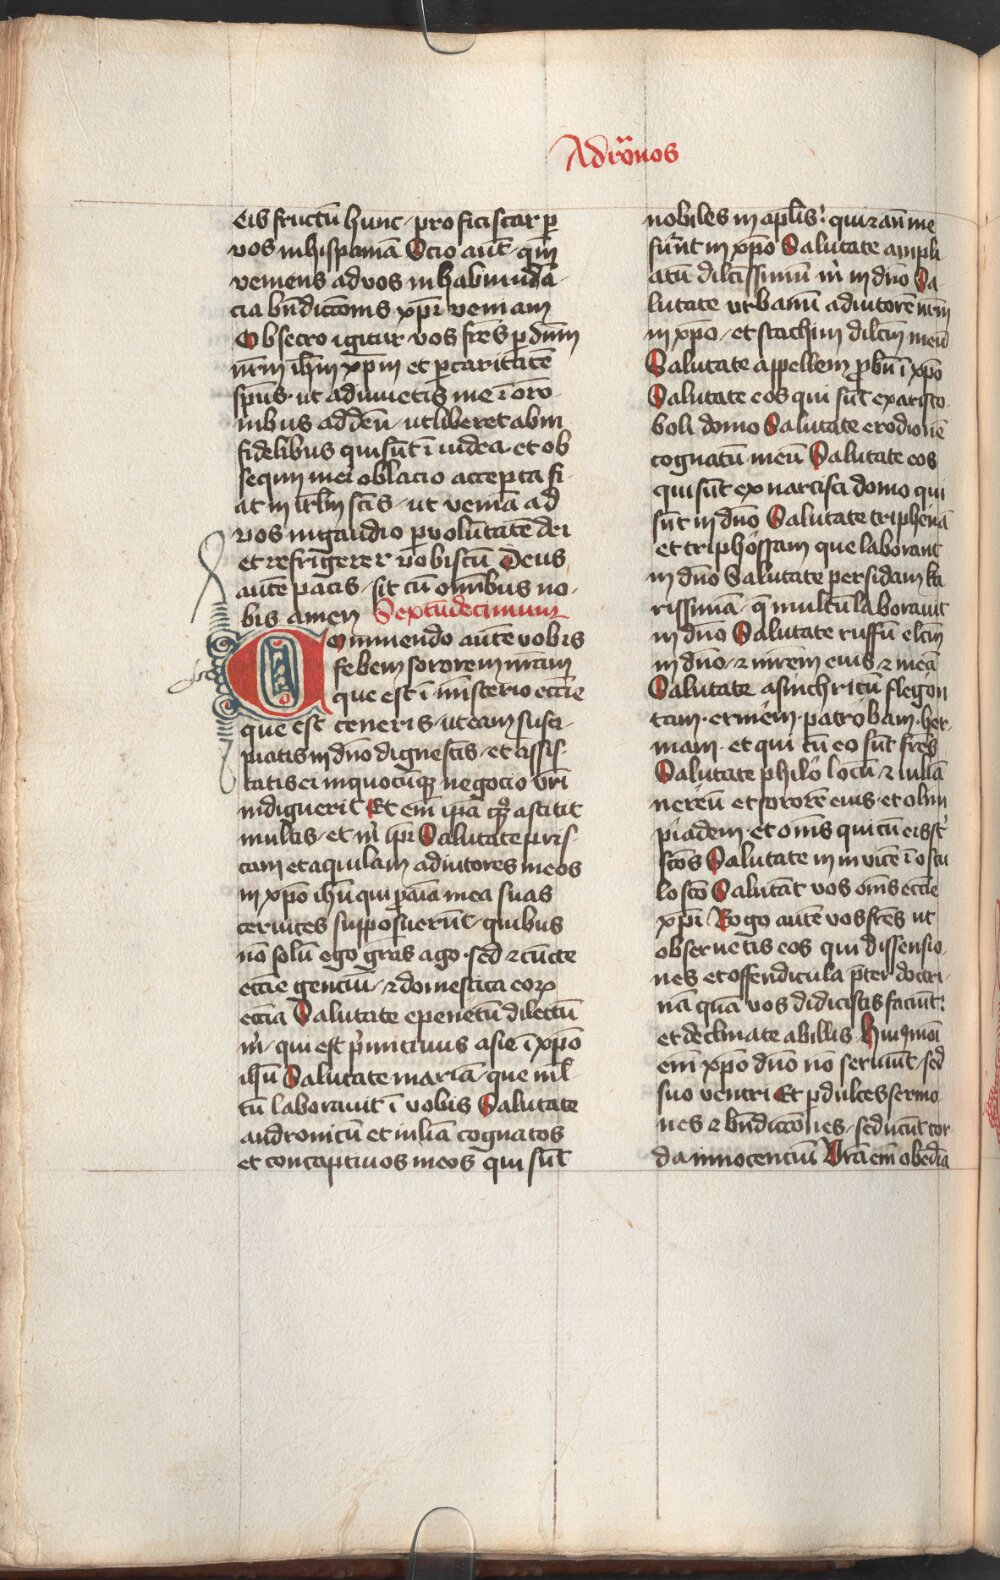 Ad ro͞nos
eis fructū hunc / proficiscar p̱
vos in hispaniā Scio aut̄ · qm̄
veniens ad vos in habūndā-
cia bn̄dictōnis xp̄i veniam
Obsecro igitur vos frēs p̱ dūm
nr̄m ih̄m xp̄m et p̱ caritatē
sp̄us · ut adiuuetis me ī oro-
nibus ad dēū / ut liberet ab in
fidelibus qui sūt ī iudea · et ob
sequij mei oblacio accepta fi-
at in irl̄m sc̄is / ut veniā ad
vos in gaudio p̱ volūtatē dei
et refrigerer vobiscū Deus
autē pacis / sit cū omnibus vo-
bis amen Sextūdecimum
Commendo autē vobis
febem sororem nr̄am
que est ī mīsterio ecc̄ie
que est ceneris / ut eam susci-
piatis in dn̄o digne sc̄is / et assis-
tatis ei in quocūq̄ negocio vr̄i
indiguerit Et em̄ ipā q̄ꝫ astitit
multis / et m̄ ip̄i Salutate pris-
cam et aquilam adiutores meos
in xp̄o ih̄u qui p̱ aīa mea suas
ceruices supposuerūt / quibus
nō solū ego gr̄as ago · sed ⁊ cūcte
ecc̄ie genciū / ⁊ domestica eoꝝ
ecc̄ia Salutate epenetū dilectū
m̄ / qui est p̄mitiuus asie ī xp̄o
ih̄u Salutate mariā / que ml̄-
tū laborauit ī vobis Salutate
andronicū et iuliā cognatos
et concaptiuos meos qui sūt
nobiles in apl̄is : qui ⁊ an̄ me
fuer̄nt in xp̄o Salutate ampli
atū dilc̄issimū m̄ in dn̄o Sa
lutate vrbanū adiutorē nr̄m
in xp̄o / et stachim dilc̄m meū
Salutate appellem p̱bū ī xp̄o
Salutate eos qui sūt ex aristo-
boli domo Salutate erodionē
cognatū meū Salutate eos
qui sūt ex narcisci domo qui
sūt in dn̄o Salutate triphenā
et triphossam que laborant
in dn̄o Salutate persidam ka
rissimā / q̄ multū laborauit
in dn̄o Salutate ruffū elc̄m
in dn̄o / ⁊ mr̄em eius ⁊ meā
Salutate asinchritū flegon
tam · ermem · patrobam · her-
mam · et qui cū eo sūt fr̄es
Salutate philo locū ⁊ iuliā
nereū et sororē eius · et olim
piadem · et om̄s qui cū eis sūt
sc̄os Salutate in inuicē ī oscu
lo sc̄o Salutāt vos om̄s ecc̄ie
xp̄i Rogo autē vos fr̄es ut
obseruetis eos qui dissensio-
nes et offendicula p̄ter doctri-
nā quā vos didicistis faciūt :
et declinate ab illis Huiꝰmōi
em̄ xp̄o dn̄o nō seruiūt / sed
suo ventri Et p̱ dulces sermo
nes ⁊ bn̄dictōnes / seducūt cor-
da innocenciū Vr̄a em̄ obedīa